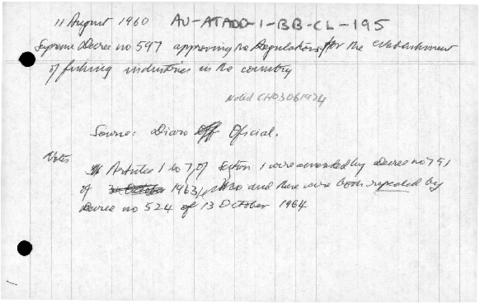 11 August 1960 AU-ATADD-1-BB-CL-195
Supreme Decree no 597 approving the Regulations for the establishment
of fishing industries in the country
Noted CH03061974
Source: Diario Off Oficial.
Notes
Articles 1 to 7, of section 1 were amended by decree no 791
of 31 October 1963, also and these were both repealed by
Decree no 524 of 13 October 1964.